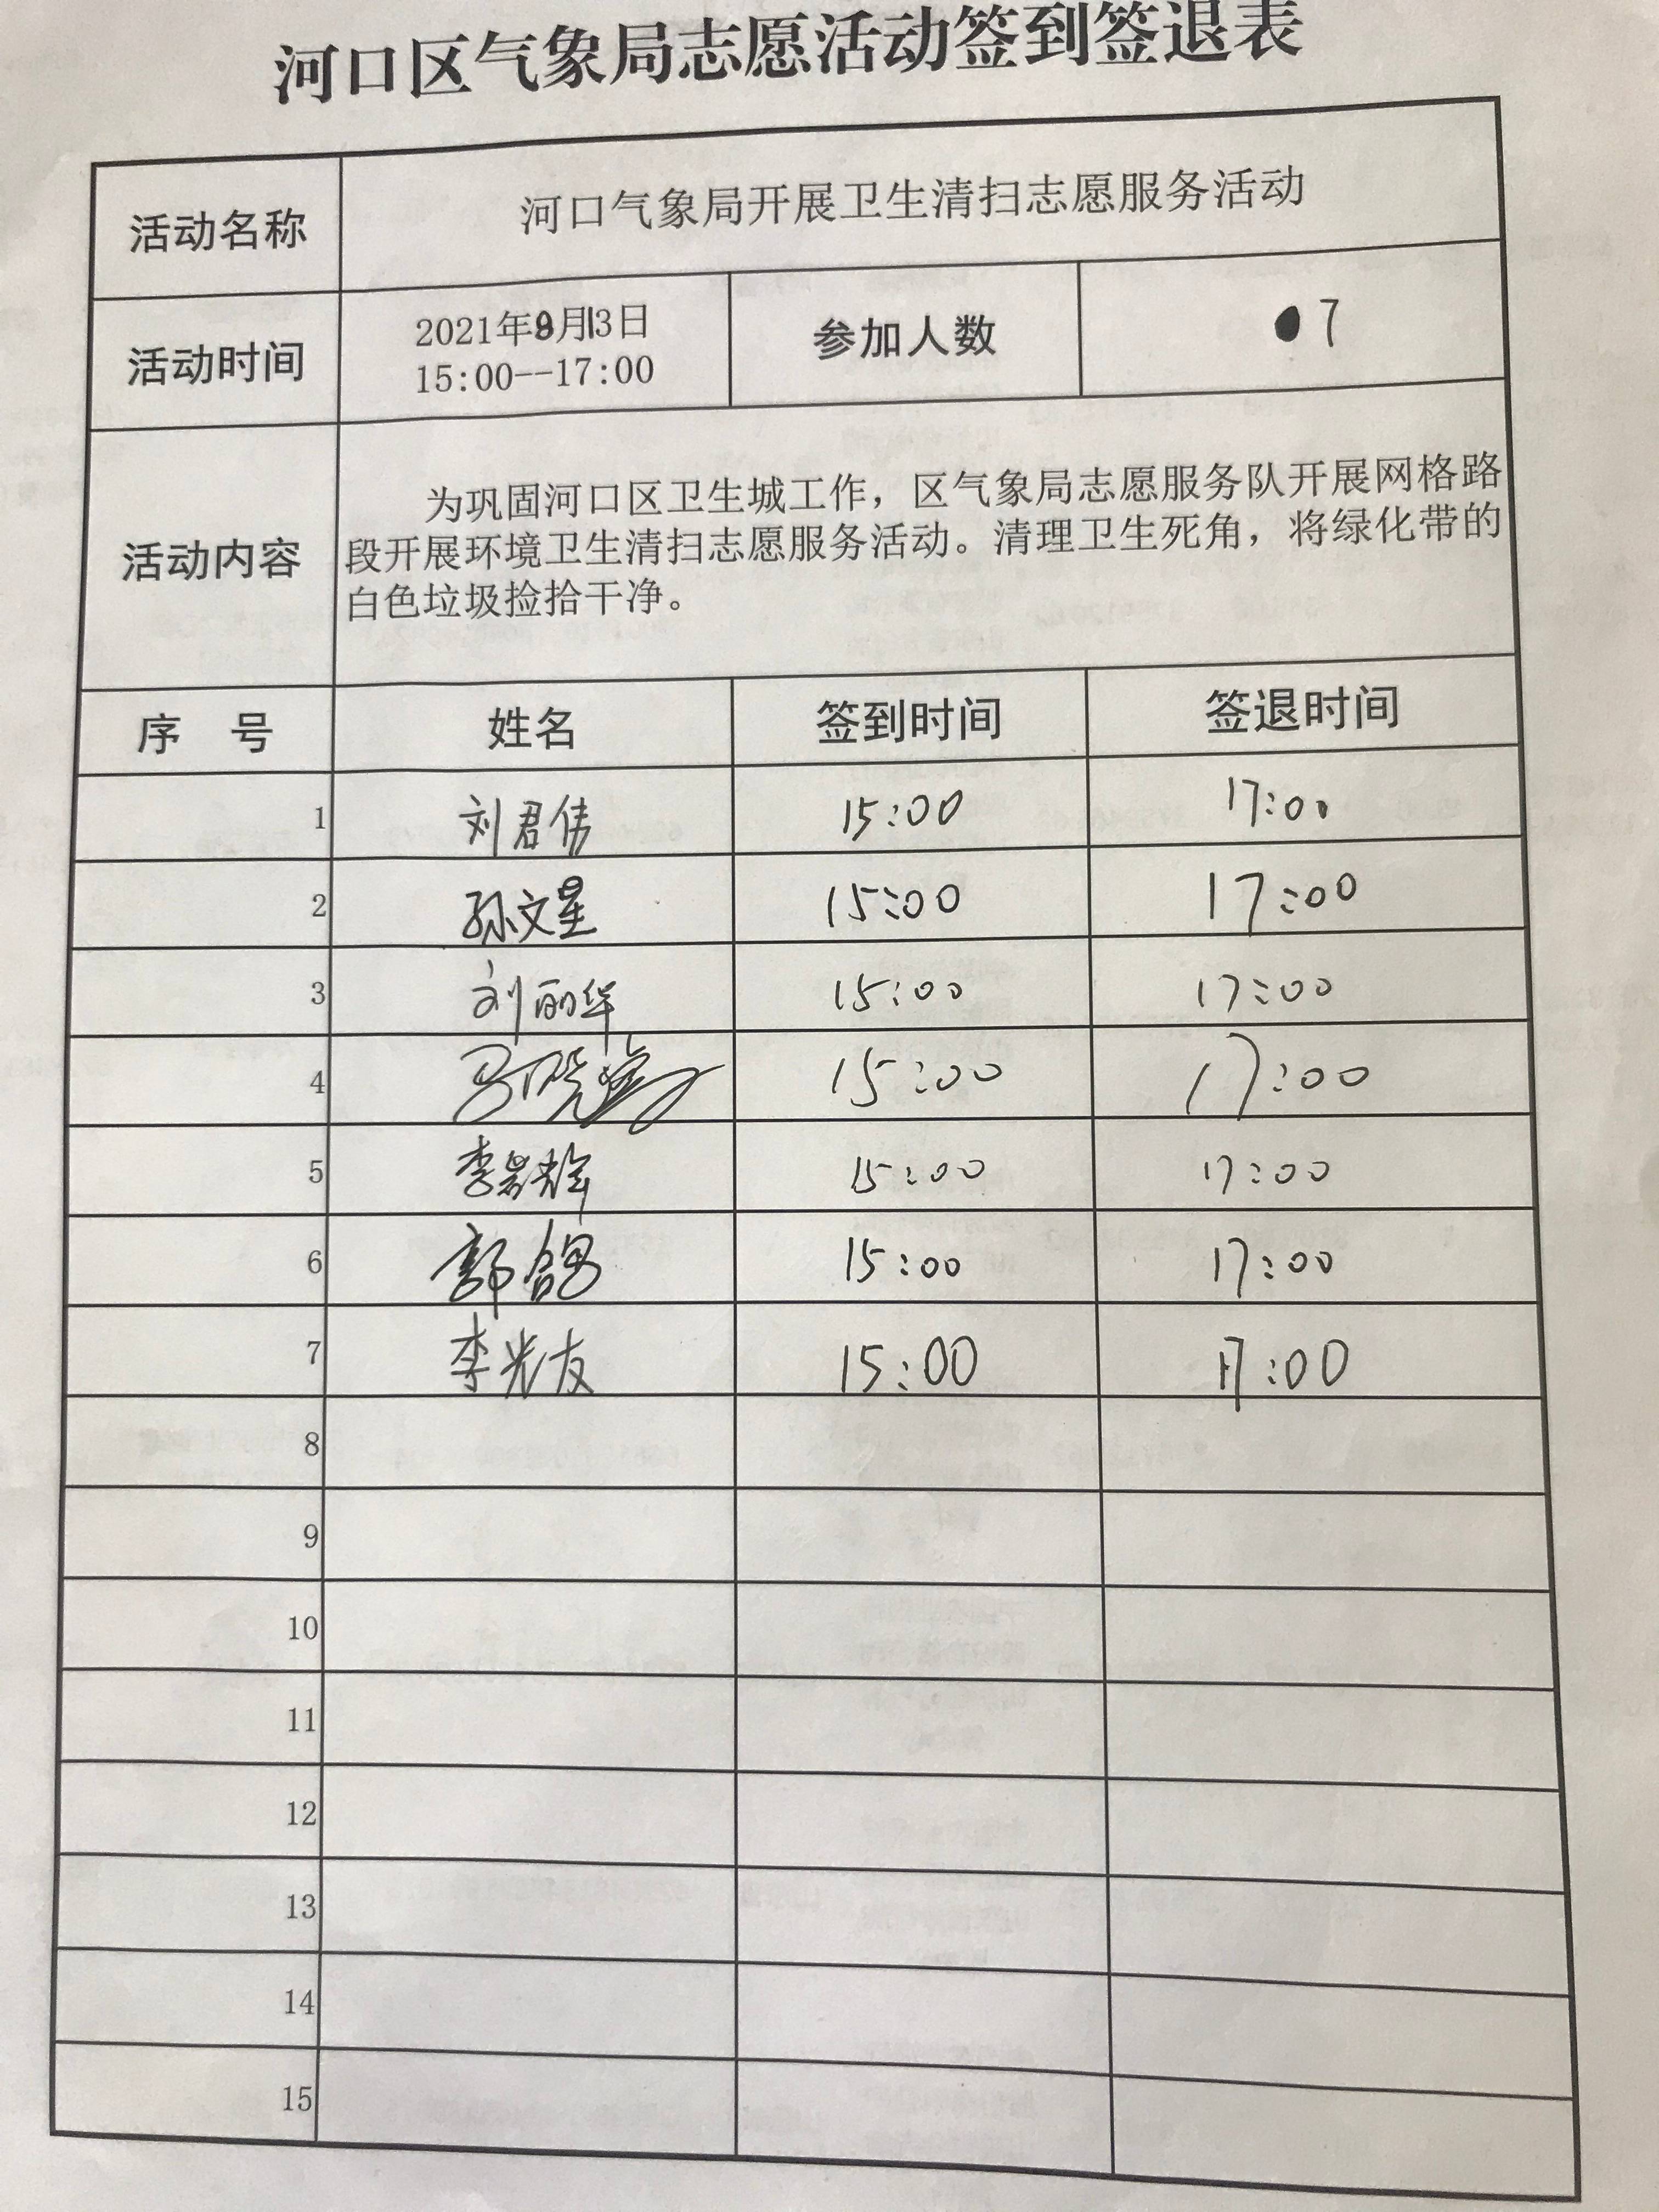 河口区气象局志愿活动签到签退表
活动名称 河口气象局开展卫生清扫志愿服务活动
活动时间 2021年9月13日 参加人数 7
15:00--17:00
活动内容 为巩固河口区卫生城工作，区气象局志愿服务队开展网格路
段开展环境卫生清扫志愿服务活动。清理卫生死角，将绿化带的
白色垃圾捡拾干净。
序 号 姓名 签到时间 签退时间
1 刘君伟 15:00 17:00
2 孙文星 15:00 17:00
3 刘丽华 15:00 17:00
4 15:00 17:00
5 15:00 17:00
6 郭鸽 15:00 17:00
7 李光友 15:00 17:00
8
9
10
11
12
13
14
15